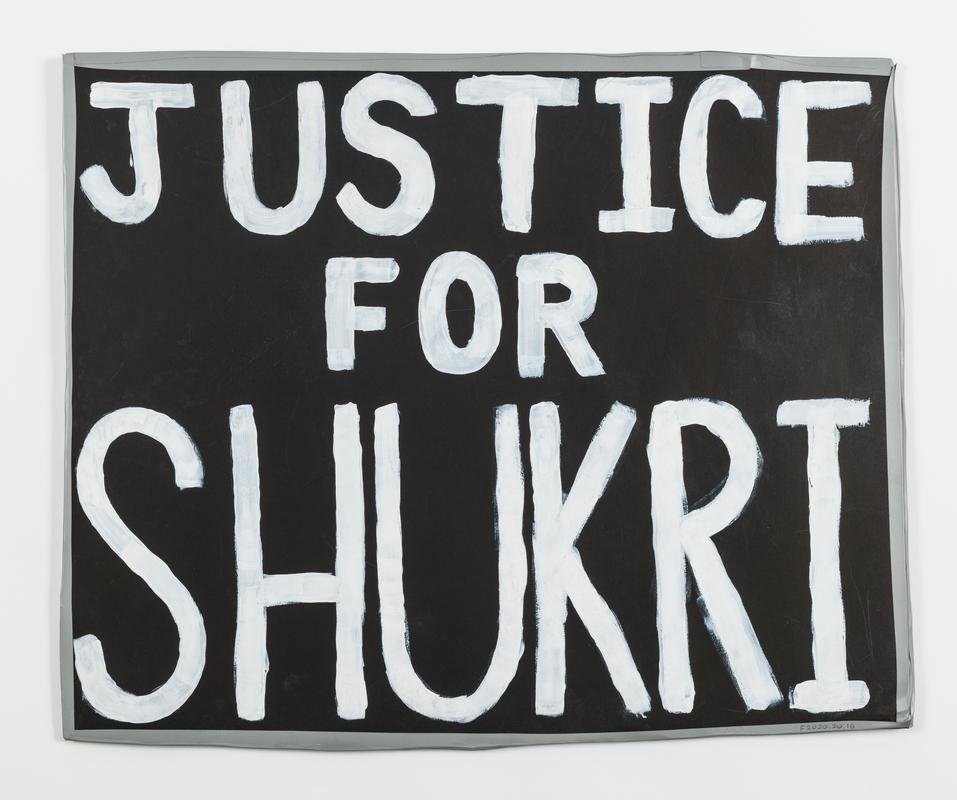 JUSTICE
FOR
SHUKRI
F2020.20.16